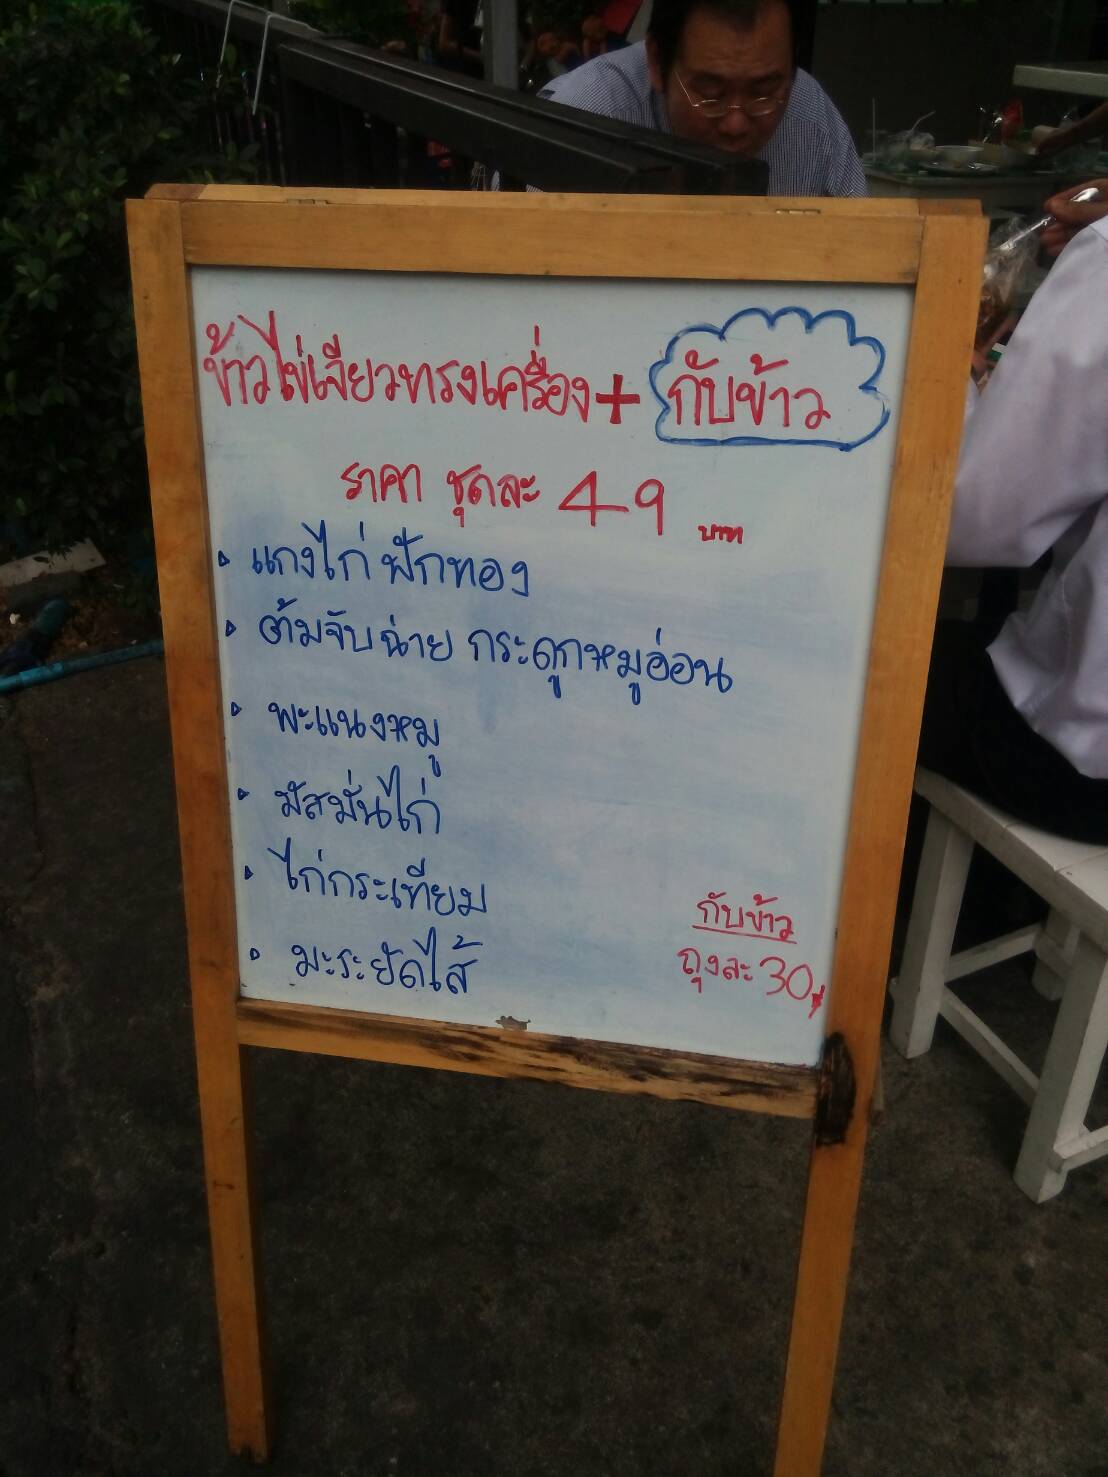 ข้าวไข่เจียวทรงเครื่อง + กับข้าว
ราคา ชุดละ 49 บาท
• แกงไก่ฟักทอง
• ต้มจับฉ่าย กระดูกหมูอ่อน
• พะแนงหมู
• มัสมั่นไก่
• ไก่กระเทียม
• มะระยัดไส้
กับข้าว
ถุงละ 30